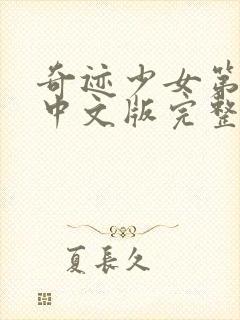 奇迹少女第
中文版完整
夏长久